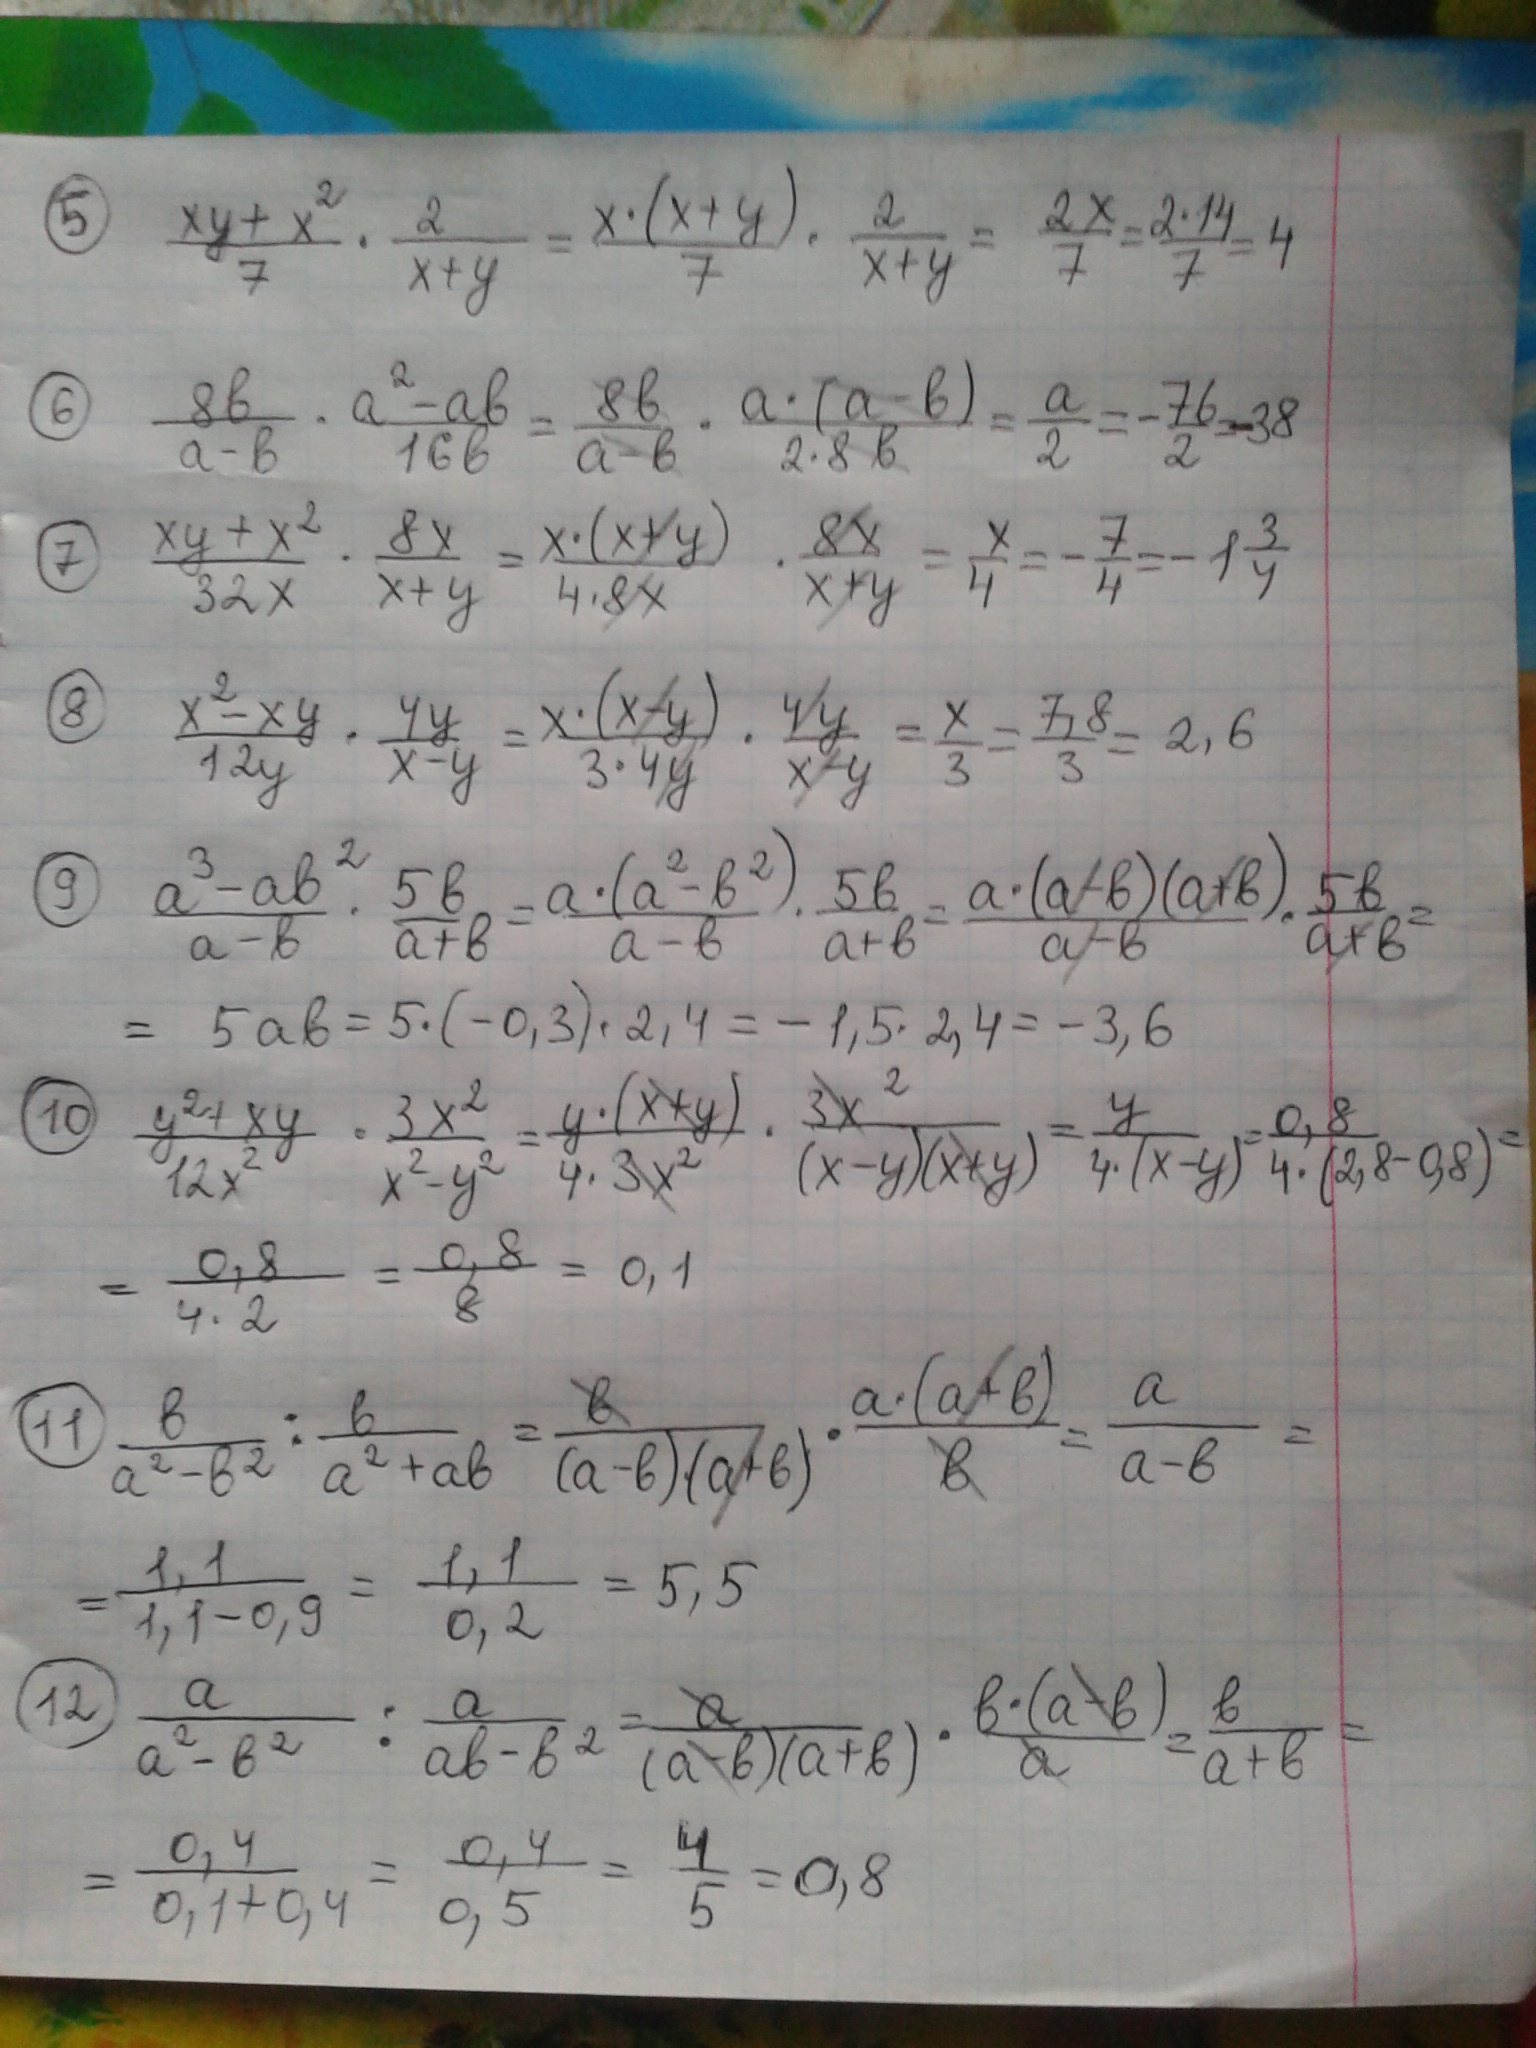 ⑤ (xy + x²)/7 · 2/(x+y) = x·(x+y)/7 · 2/(x+y) = 2x/7 = 2·14/7 = 4
⑥ 8в/(a-в) · (a²-aв)/16в = 8в/(a-в) · a·(a-в)/(2·8в) = a/2 = -76/2 = -38
⑦ (xy + x²)/32x · 8x/(x+y) = x·(x+y)/(4·8x) · 8x/(x+y) = x/4 = -7/4 = -1 3/4
⑧ (x²-xy)/12y · 4y/(x-y) = x·(x-y)/(3·4y) · 4y/(x-y) = x/3 = 7,8/3 = 2,6
⑨ (a³-aв²)/(a-в) · 5в/(a+в) = a·(a²-в²)/(a-в) · 5в/(a+в) = a·(a-в)(a+в)/(a-в) · 5в/(a+в) =
= 5aв = 5·(-0,3)·2,4 = -1,5·2,4 = -3,6
⑩ (y²+xy)/12x² · 3x²/(x²-y²) = y·(x+y)/(4·3x²) · 3x²/((x-y)(x+y)) = y/(4·(x-y)) = 0,8/(4·(2,8-0,8)) =
= 0,8/(4·2) = 0,8/8 = 0,1
⑪ в/(a²-в²) : в/(a²+aв) = в/((a-в)·(a+в)) · a·(a+в)/в = a/(a-в) =
= 1,1/(1,1-0,9) = 1,1/0,2 = 5,5
⑫ a/(a²-в²) : a/(aв-в²) = a/((a-в)(a+в)) · в·(a-в)/a = в/(a+в) =
= 0,4/(0,1+0,4) = 0,4/0,5 = 4/5 = 0,8